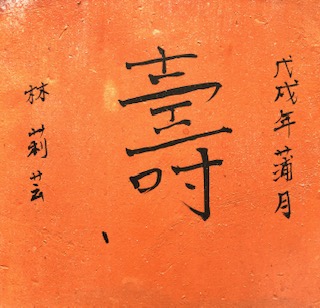 戊戌年蒲月
壽
林莉芸